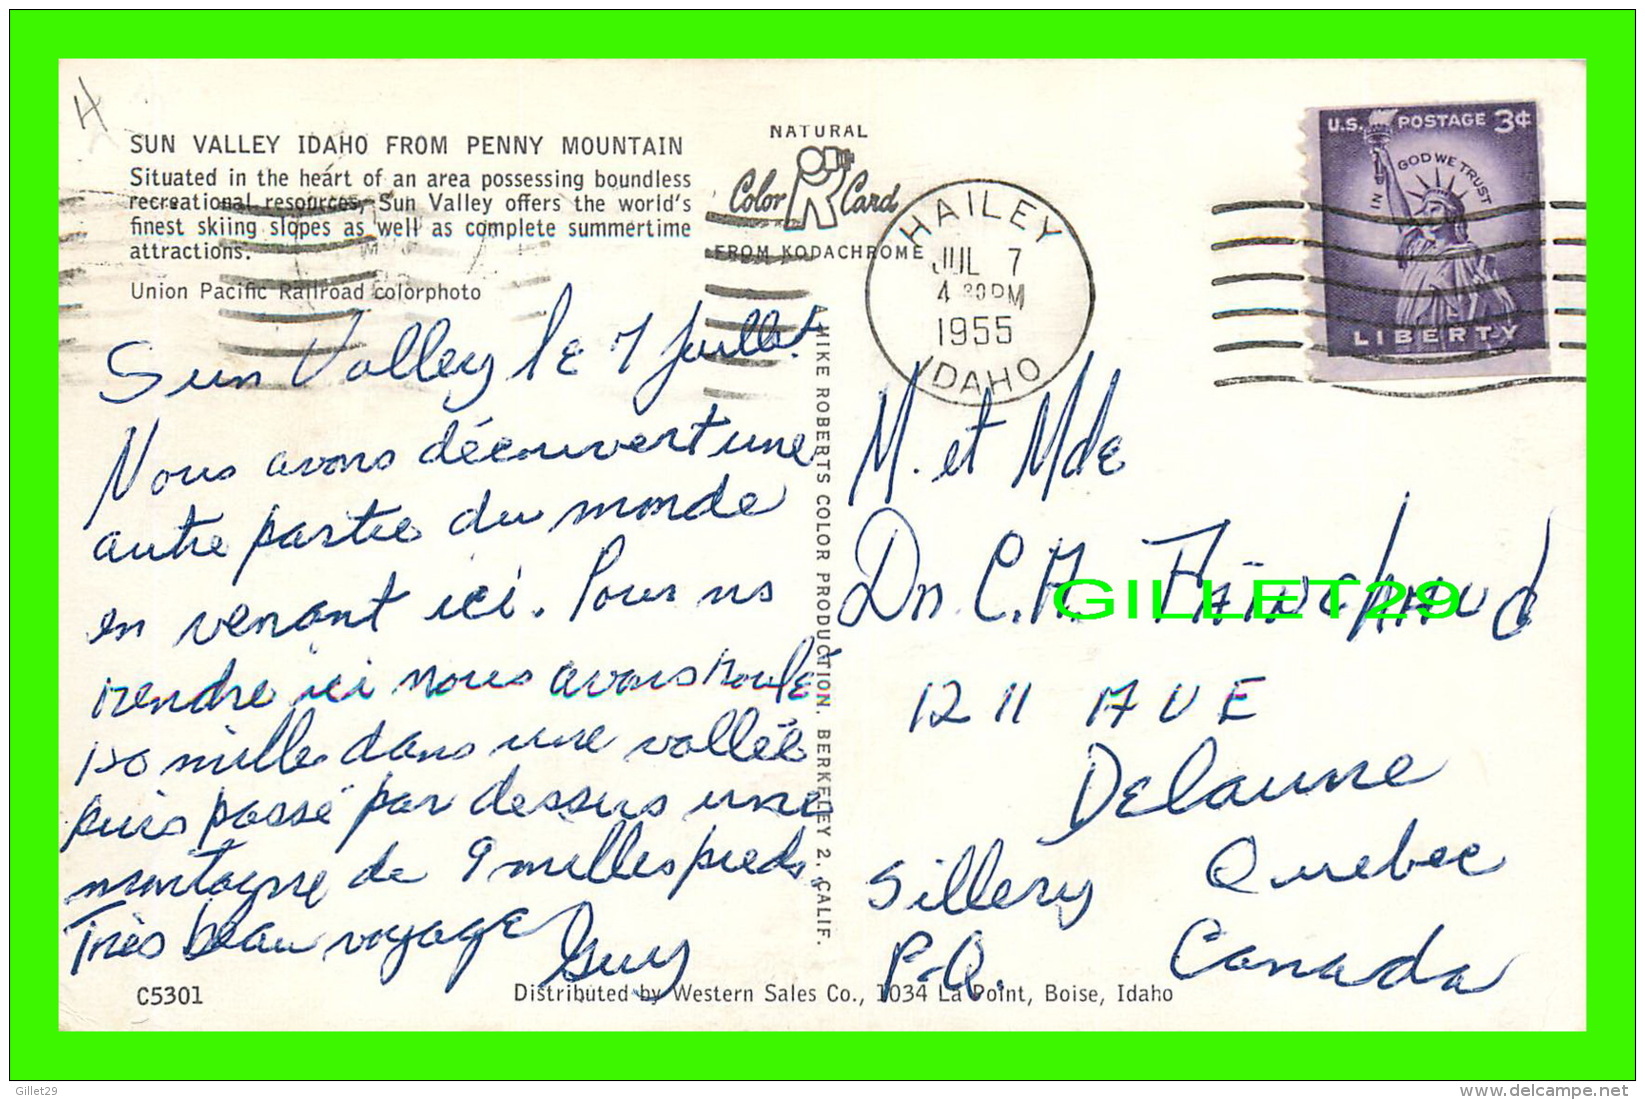 H
SUN VALLEY IDAHO FROM PENNY MOUNTAIN
Situated in the heart of an area possessing boundless
recreational resources, Sun Valley offers the world's
finest skiing slopes as well as complete summertime
attractions.
Union Pacific Railroad colorphoto
NATURAL
Color Card
FROM KODACHROME
HAILEY
JUL 7
4 30PM
1955
IDAHO
U.S. POSTAGE 3¢
IN GOD WE TRUST
LIBERTY
Sun Valley le 7 Juillet
Nous avons découvert une
autre partie du monde
en venant ici. Pour ns
rendre ici nous avons roulé
150 mille dans une vallée
puis passé par dessus une
montagne de 9 milles pieds.
Très beau voyage
Guy
A MIKE ROBERTS COLOR PRODUCTION. BERKELEY 2, CALIF.
M. et Mde
Dr. C.A.
1211 AVE
Delaune
Sillery Quebec
P.Q. Canada
GILLET29
C5301
Distributed by Western Sales Co., 1034 La Point, Boise, Idaho
Gillet29
delcampe.net